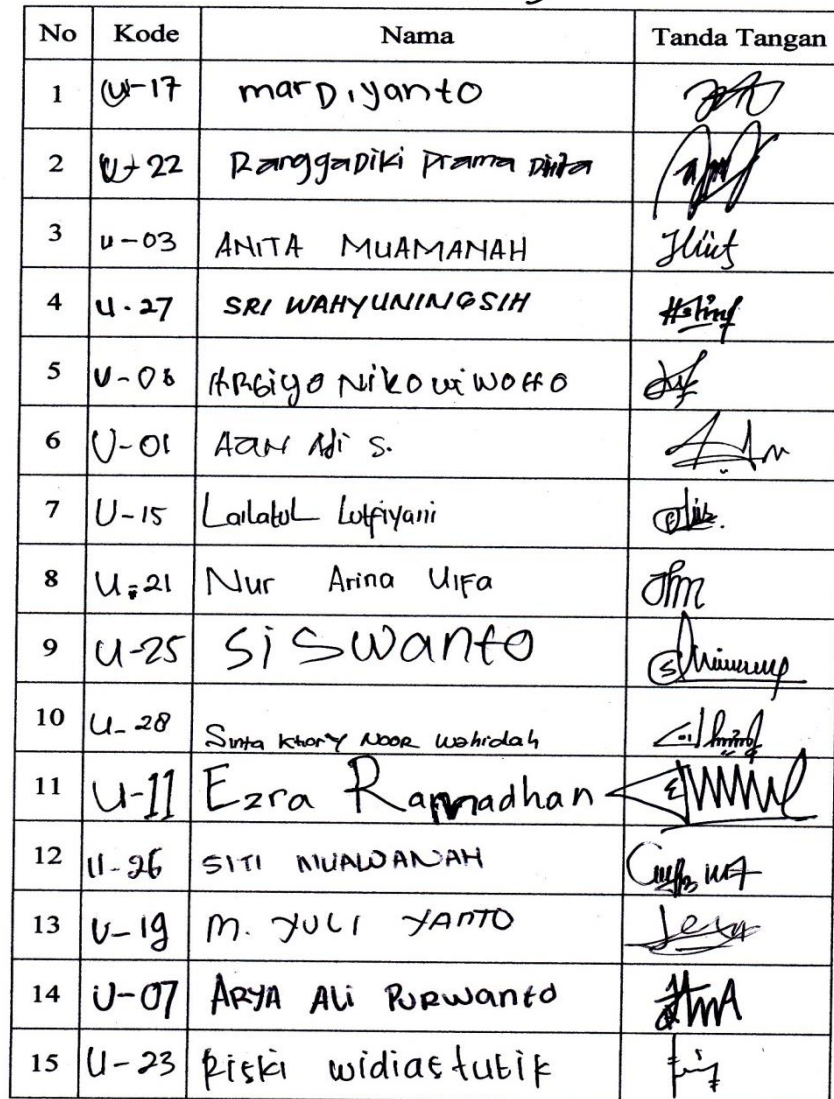 No Kode Nama Tanda Tangan
1 U-17 marDiyanto
2 U-22 RanggaDiki Prama
3 u-03 ANITA MUAMANAH
4 U-27 SRI WAHYUNINGSIH
5 U-08 NiKo
6 U-01 Adi S.
7 U-15 Lailatul Lutfiyani
8 U-21 Nur Arina Ulfa
9 U-25 SiSwanto
10 U-28 Sinta Khory Noor Wahidah
11 U-11 Ezra Ramadhan
12 U-26 SITI MUAWANAH
13 U-19 M. YULI YANTO
14 U-07 ARYA ALi PURWanto
15 U-23 Riski widiastutik